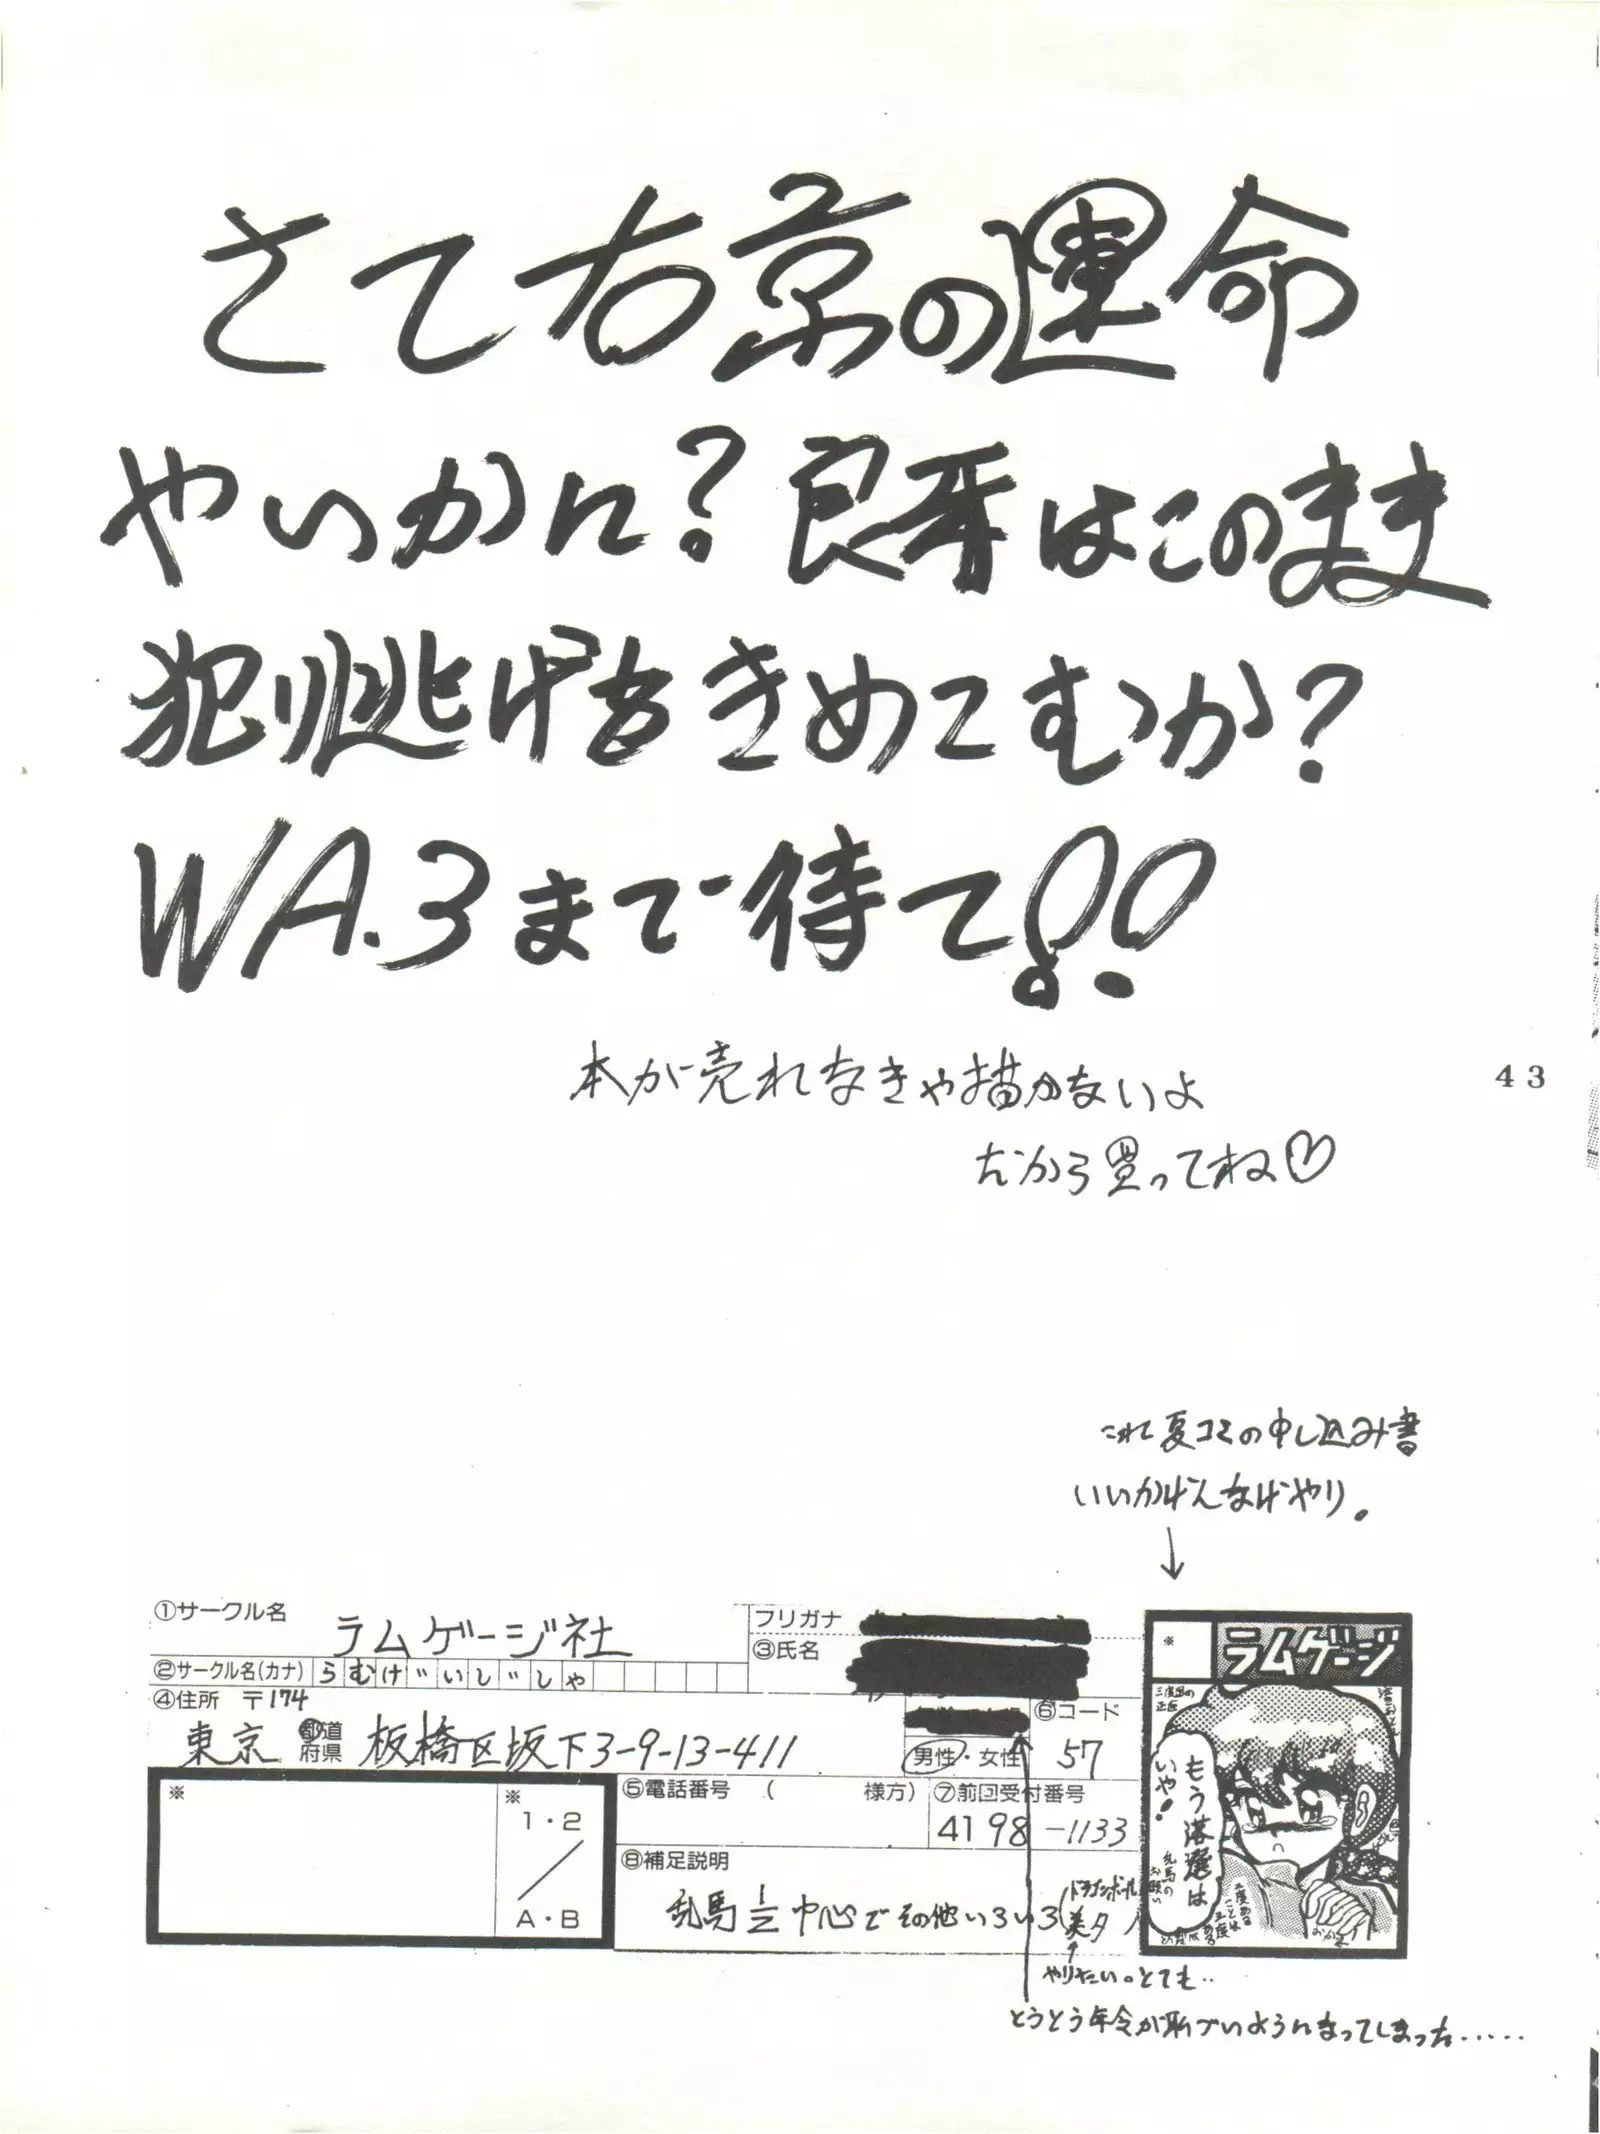 さて右京の運命
やいかに?良牙はこのまま
犯り逃げをきめてむか?
WA.3まで待て!!
本が売れなきゃ描かないよ
だから買ってね♡
43
これ夏コミの申し込み書
いいかげんなげやり。
①サークル名
ラムゲージ社
フリガナ
③氏名
②サークル名(カナ)
らむげいじしゃ
④住所 〒174
東京 都道府県 板橋区坂下3-9-13-411
男性・女性
⑥コード
57
※
※
1・2
A・B
⑤電話番号 ( 様方)
⑦前回受付番号
4198-1133
⑧補足説明
乱馬1/2中心でその他いろいろ(ドラゴンボール
美夕
やりたい。とても‥
とうとう年令が恥づいようになってしまった……
※
ラムゲージ
三度目の
正直
もう落選は
いや!
乱馬の
お願い
二度ある
ことは
三度
ある